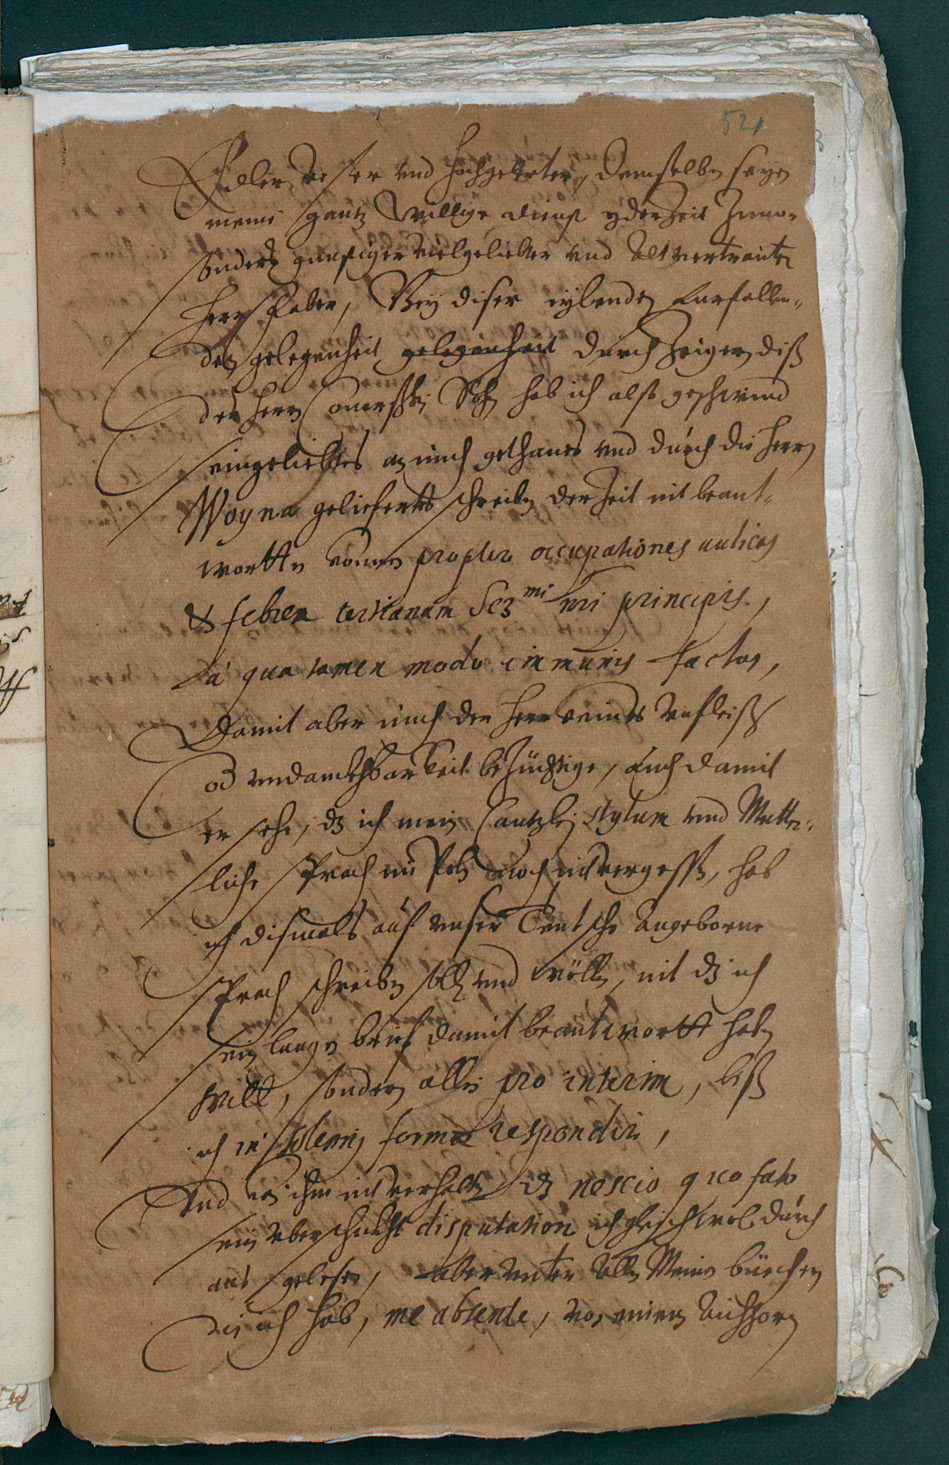 521
Edler, Vester vnd Hochgelerter, demselben seyen
meine gantz willige dienst yderZeit Zuuor
sonders günstiger vielgeliebter vnd Altvertrauter
Herr Faber, Bey diser eylenden fürfallen-
den gelegenheit gelegenheit durch Zeigern diß
den Herrn Sohn hab ich alß geschwind
sein geliebtes an mich gethanes vnd durch die Herrn
Woyna geliefertes schreiben der Zeit nit beant-
wortten können propter occupationes aulicas
& febrem tertianam Ser mi nri principis,
à qua tamen modo immunis factus,
Damit aber mich der Herr keines Vnfleiß
od vndanckhbarkeit bezüchtige, Auch damit
er sehe, dz ich mein Cantzley stylum vnd Mutter-
liche sprach inn Poln noch nit vergessen, hab
ich dismals auf vnser Teutsche Angeborne
sprach schreiben sollen vnd wöllen, nit dz ich
sein langen brief damit beantwortt haben
will, sonder allein pro interim, biß
ich in solenni forma respondir,
Vnd kan ihm nit verhalten dz nescio quo fato
sein vberschickht disputation ich gleichwol durch
aus gelesen, aber vnter allen Meinen büechern
die ich hab, me absente, von meinen